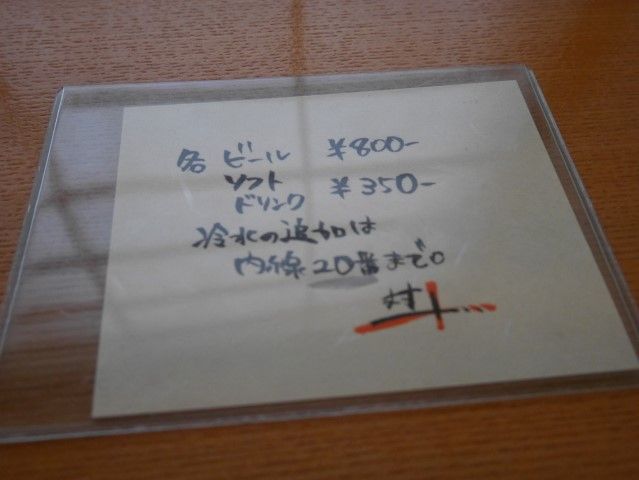 各 ビール ¥800-
ソフト
ドリンク ¥350-
冷水の追加は
内線20番まで。